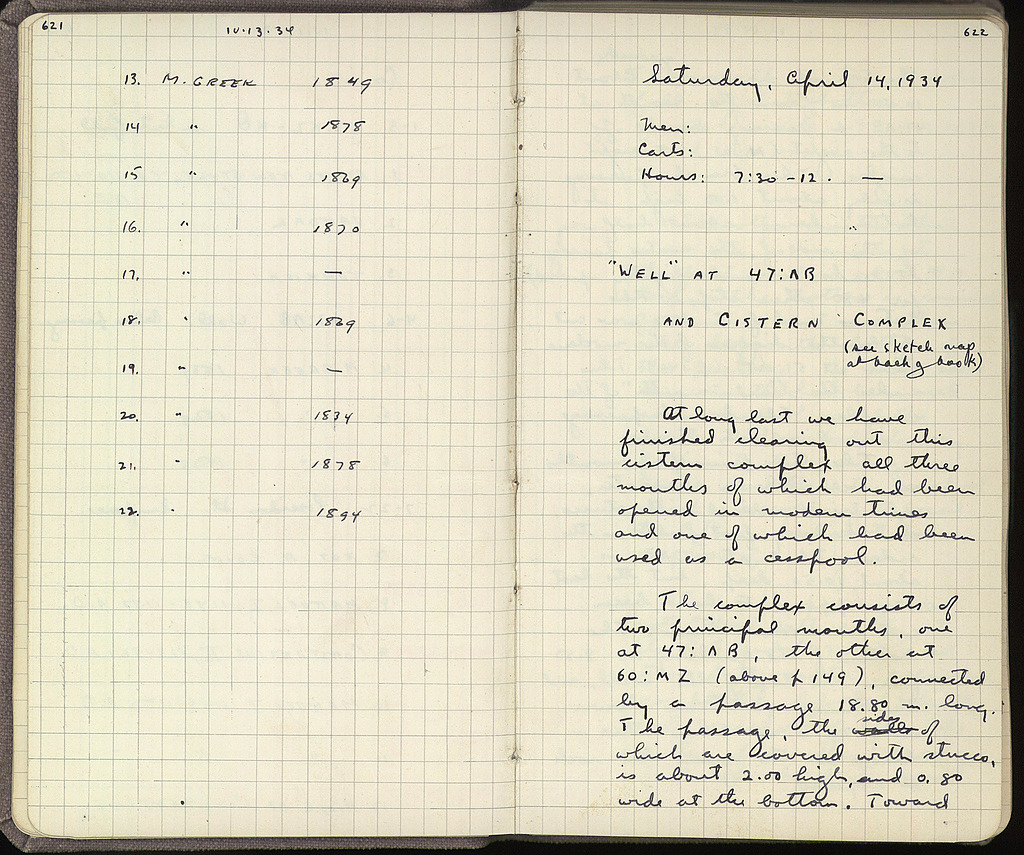 621
IV·13·34
13. M. GREEK 1849
14 " 1878
15 " 1869
16. " 1870
17. " —
18. " 1869
19. " —
20. " 1834
21. " 1878
22. " 1894
622
Saturday, April 14, 1934
Men:
Carts:
Hours: 7:30 - 12. —
"WELL" AT 47:ΛΒ
AND CISTERN COMPLEX
(see sketch map
at back of book)
At long last we have
finished clearing out this
cistern complex all three
mouths of which had been
opened in modern times
and one of which had been
used as a cesspool.
The complex consists of
two principal mouths, one
at 47:ΛΒ, the other at
60:ΜΖ (above p 149), connected
by a passage 18.80 m. long.
The passage, the walls sides of
which are covered with stucco,
is about 2.00 high, and 0.80
wide at the bottom. Toward